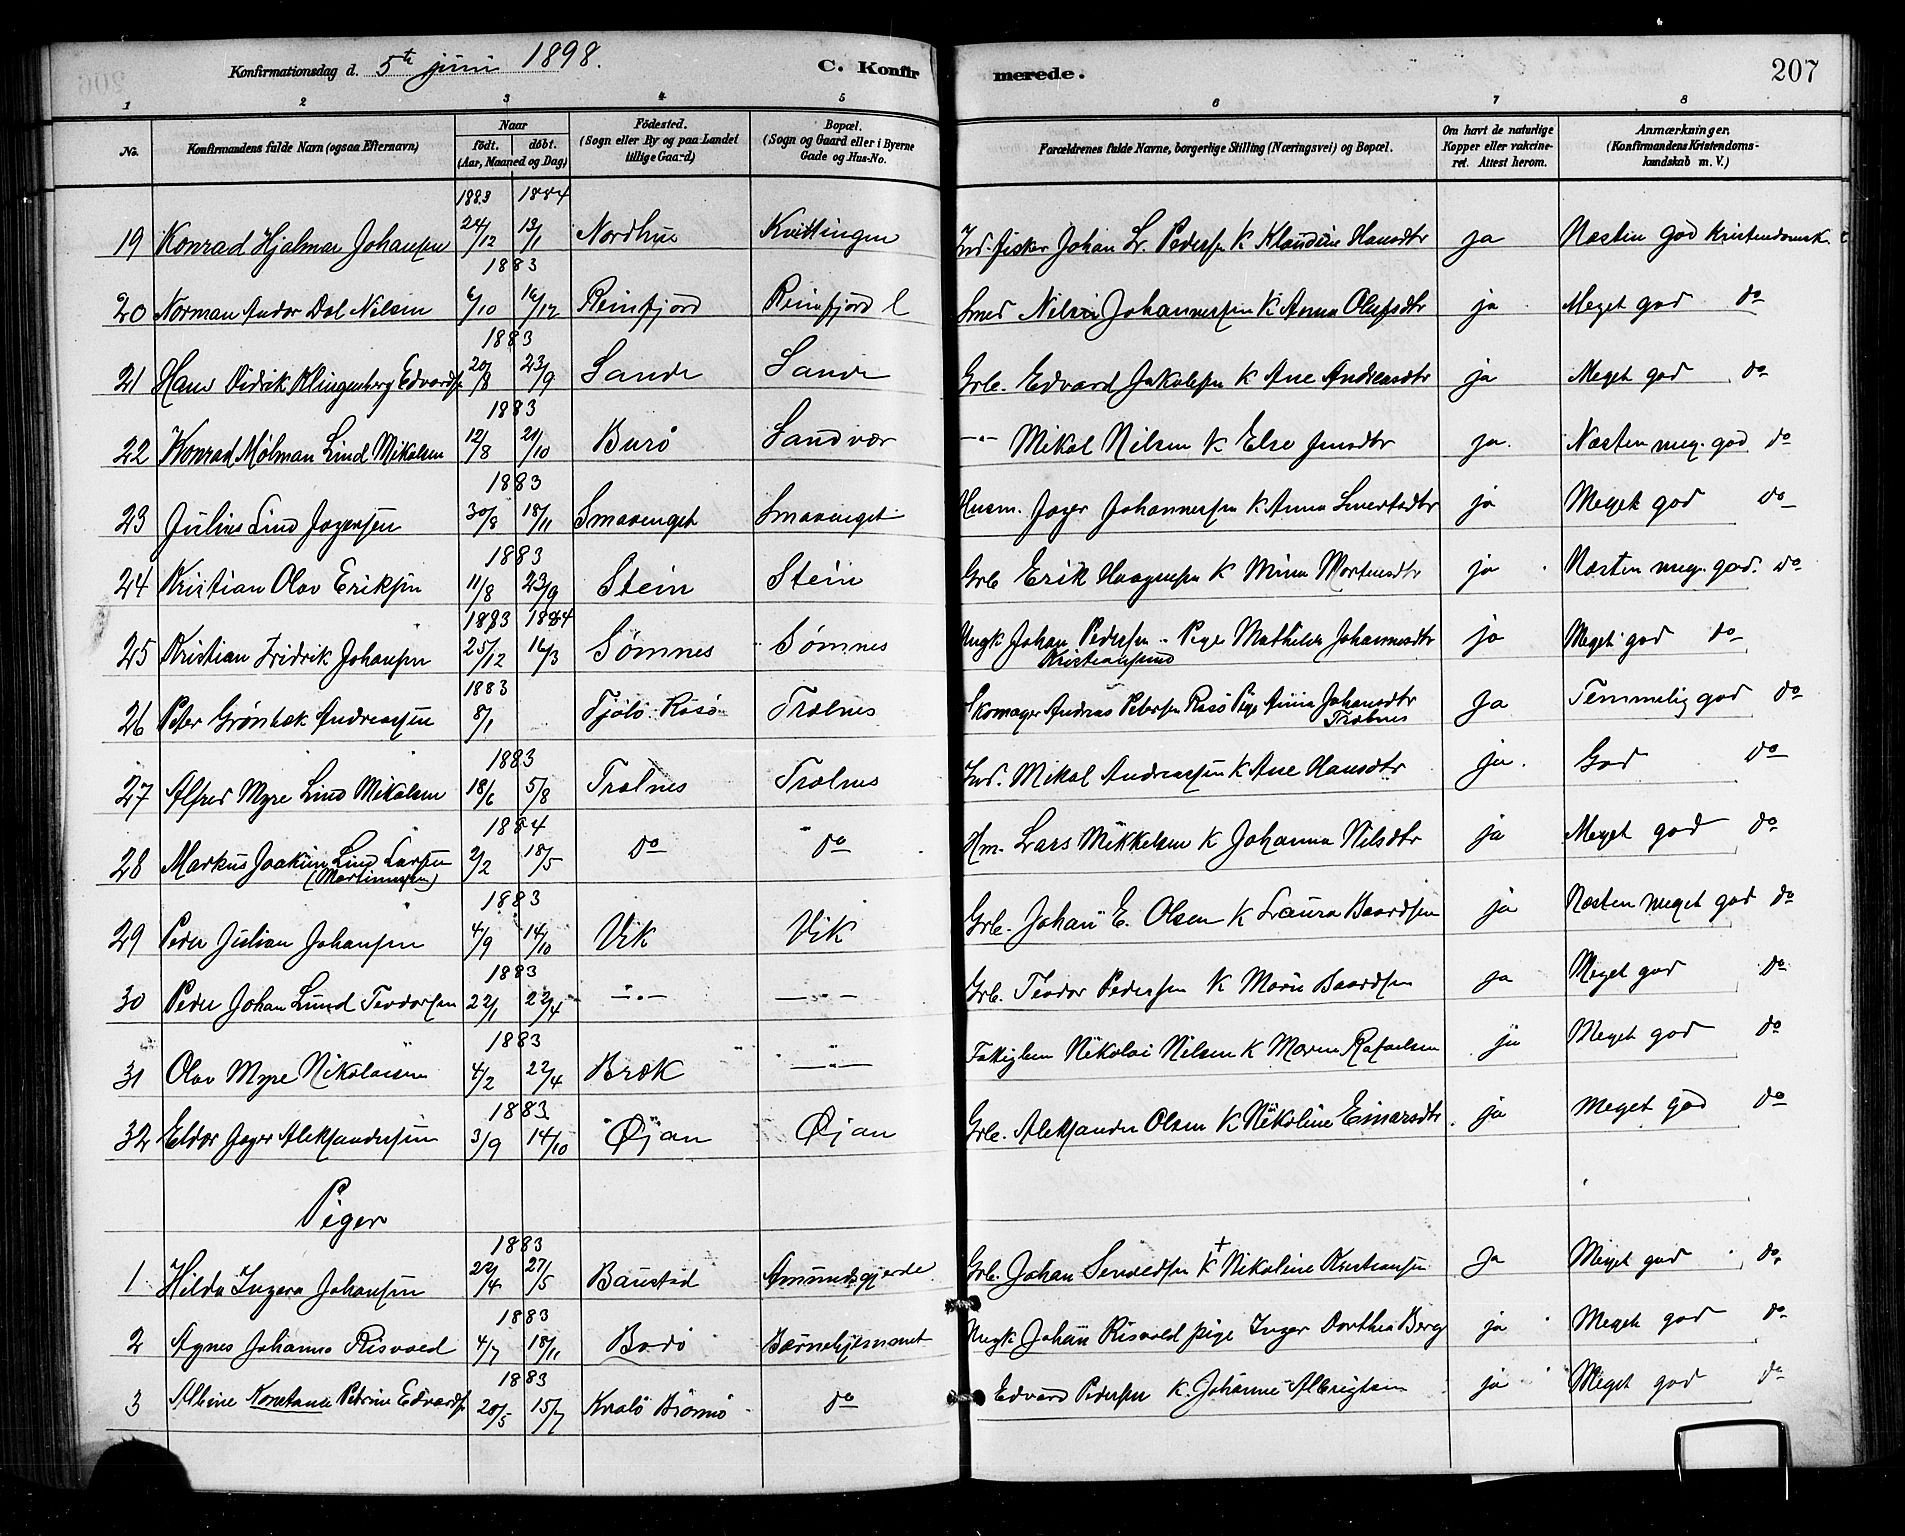 Konfirmationsdag d. 5te juni 1898. C. Konfir merede. 207
1 2 3 4 5 6 7 8
No. Konfirmandens fulde Navn (ogsaa Efternavn) Naar født. døbt. (Aar, Maaned og Dag) Födested. (Sogn eller By og paa Landet tillige Gaard) Bopæl. (Sogn og Gaard eller i Byerne Gade og Hus-No. Forældrenes fulde Navne, borgerlige Stilling (Næringsvei) og Bopæl. Om havt de naturlige Kopper eller vakcineret. Attest herom. Anmærkninger, (Konfirmandens Kristendomskundskab m. V.)
1883 1884
19 Konrad Hjalmar Johansen 24/12 13/1 Nordhus Kvittingen Ind. fisker Johan L. Pedersen K Klaudine Hansdtr ja Næsten god Kristendomsk.
1883
20 Norman Andor Dal Nilsen 6/10 16/12 Reinfjord Reinfjord Smed Nils Johannessen K Anna Olufsdtr ja Meget god do
1883
21 Hans Didrik Klingenberg Edvardsen 20/8 23/9 Sande Sande Grb. Edvard Jakobsen K Ane Andreasdtr ja Meget god do
1883
22 Konrad Mølman Lind Mikalsen 12/8 21/10 Burø Sandvær -"- Mikal Nilsen K Else Jensdtr ja. Næsten meg. god do
1883
23 Julius Lind Jagersen 30/8 18/11 Smavenget Smavenget Husm. Jager Johannessen K Anna Sivertsdtr ja Meget god do
1883
24 Kristian Olav Eriksen 11/8 23/9 Stein Stein Grb Erik Haagensen K Mina Mortensdtr ja Næsten meg. god. do
1883 1884
25 Kristian Fridrik Johansen 25/12 16/3 Sømnes Sømnes Ungk Johan Pedersen Pige Mathilde Johannesdtr ja Meget god do
Kristiansund
1883
26 Peter Grønbæk Andreassen 8/1 Tjøtø Rosø Trælnes Skomager Andreas Petersen Rosø Pige Anna Johansdtr Ja Temmelig god do
Trælnes
1883
27 Alfred Myre Lind Mikalsen 18/6 5/8 Trælnes Trælnes Ind. Mikal Andreassen K Ane Hansdtr ja. God do
1884
28 Markus Joakim Lind Larsen 2/2 18/5 do do Hm. Lars Mikkelsen K Johanna Nilsdtr ja Meget god do
(Martinussen)
1883
29 Peder Julian Johansen 4/9 14/10 Vik Vik Grb. Johan E. Olsen K Laura Baardsen ja Næsten meget god do
1883
30 Peder Johan Lund Teodorsen 22/1 22/4 -"- -"- Grb. Teodor Pedersen K Marie Baardsen ja Meget god do
1883
31 Olav Myre Nikolaisen 4/2 22/4 Bræk -"- Fattiglem Nikolai Nilsen K Maren Rafaelsen ja Meget god do
1883
32 Eldor Jager Aleksandersen 3/9 14/10 Øjan Øjan Grb. Aleksander Olsen K Nikoline Einarsdtr. ja Meget god do
Piger
1883
1 Hilda Ingera Johansen 22/4 27/5 Baustad Amundsgjerde Grb. Johan Sendedsen K+ Nikoline Kristiansen Ja Meget god do
1883
2 Agnes Johanna Risvold 4/7 18/11 Bodø Børnehjemmet Ungk Johan Risvold pige Inger Dorthea Berg ja Meget god do
1883
3 Albine Konstanse Petrine Edvardsen 20/5 15/7 Kvalø Brønnø do Edvard Pedersen K. Johanne Albrigtsen ja Meget god do